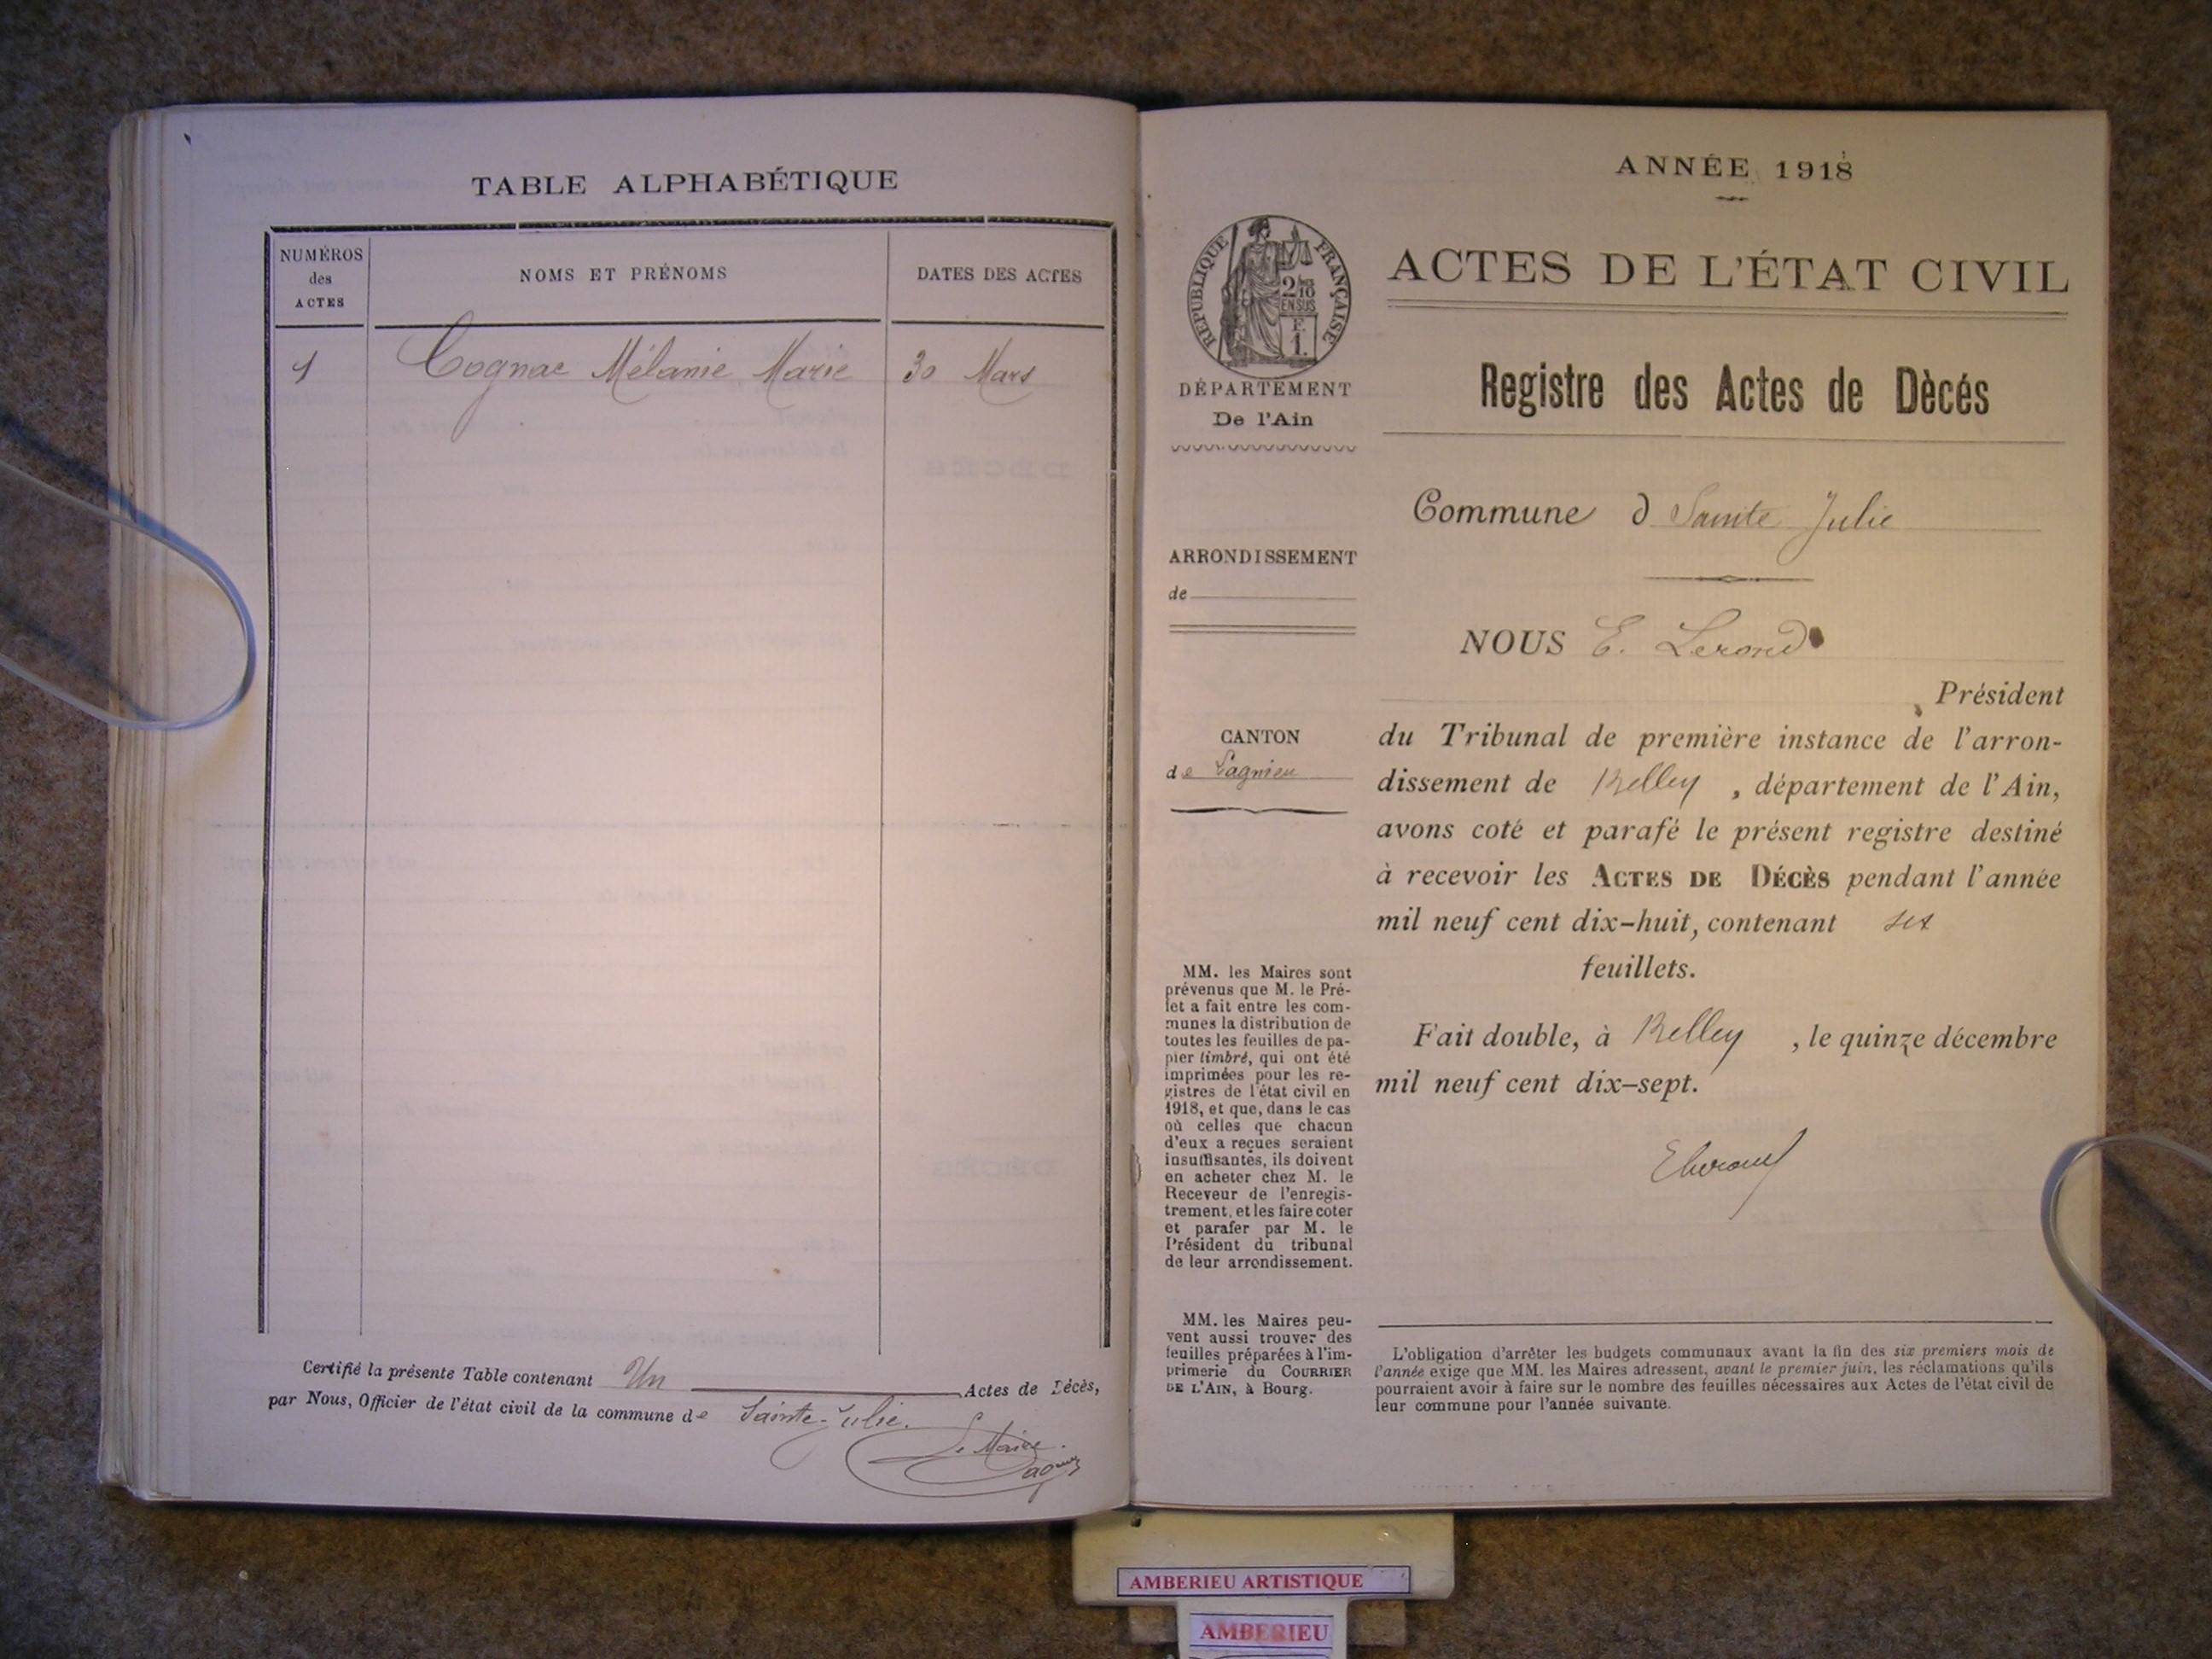 TABLE ALPHABÉTIQUE
NUMÉROS
des
ACTES
NOMS ET PRÉNOMS
DATES DES ACTES
1 Cognac Mélanie Marie 30 Mars
Certifié la présente Table contenant Un Actes de Décès,
par Nous, Officier de l'état civil de la commune de Sainte-Julie.
Le Maire.
ANNÉE 1918
RÉPUBLIQUE FRANÇAISE
2/10
EN SUS
F.
1.
DÉPARTEMENT
De l'Ain
ARRONDISSEMENT
de
CANTON
de Lagnieu
MM. les Maires sont
prévenus que M. le Pré-
fet a fait entre les com-
munes la distribution de
toutes les feuilles de pa-
pier timbré, qui ont été
imprimées pour les re-
gistres de l'état civil en
1918, et que, dans le cas
où celles que chacun
d'eux a reçues seraient
insuffisantes, ils doivent
en acheter chez M. le
Receveur de l'enregis-
trement, et les faire coter
et parafer par M. le
Président du tribunal
de leur arrondissement.
MM. les Maires peu-
vent aussi trouver des
feuilles préparées à l'im-
primerie du COURRIER
DE L'AIN, à Bourg.
ACTES DE L'ÉTAT CIVIL
Registre des Actes de Dècés
Commune d Sainte Julie
NOUS E. Lerond
, Président
du Tribunal de première instance de l'arron-
dissement de Belley , département de l'Ain,
avons coté et parafé le présent registre destiné
à recevoir les ACTES DE DÉCÈS pendant l'année
mil neuf cent dix-huit, contenant six
feuillets.
Fait double, à Belley , le quinze décembre
mil neuf cent dix-sept.
L'obligation d'arrêter les budgets communaux avant la fin des six premiers mois de
l'année exige que MM. les Maires adressent, avant le premier juin, les réclamations qu'ils
pourraient avoir à faire sur le nombre des feuilles nécessaires aux Actes de l'état civil de
leur commune pour l'année suivante.
AMBERIEU ARTISTIQUE
AMBERIEU